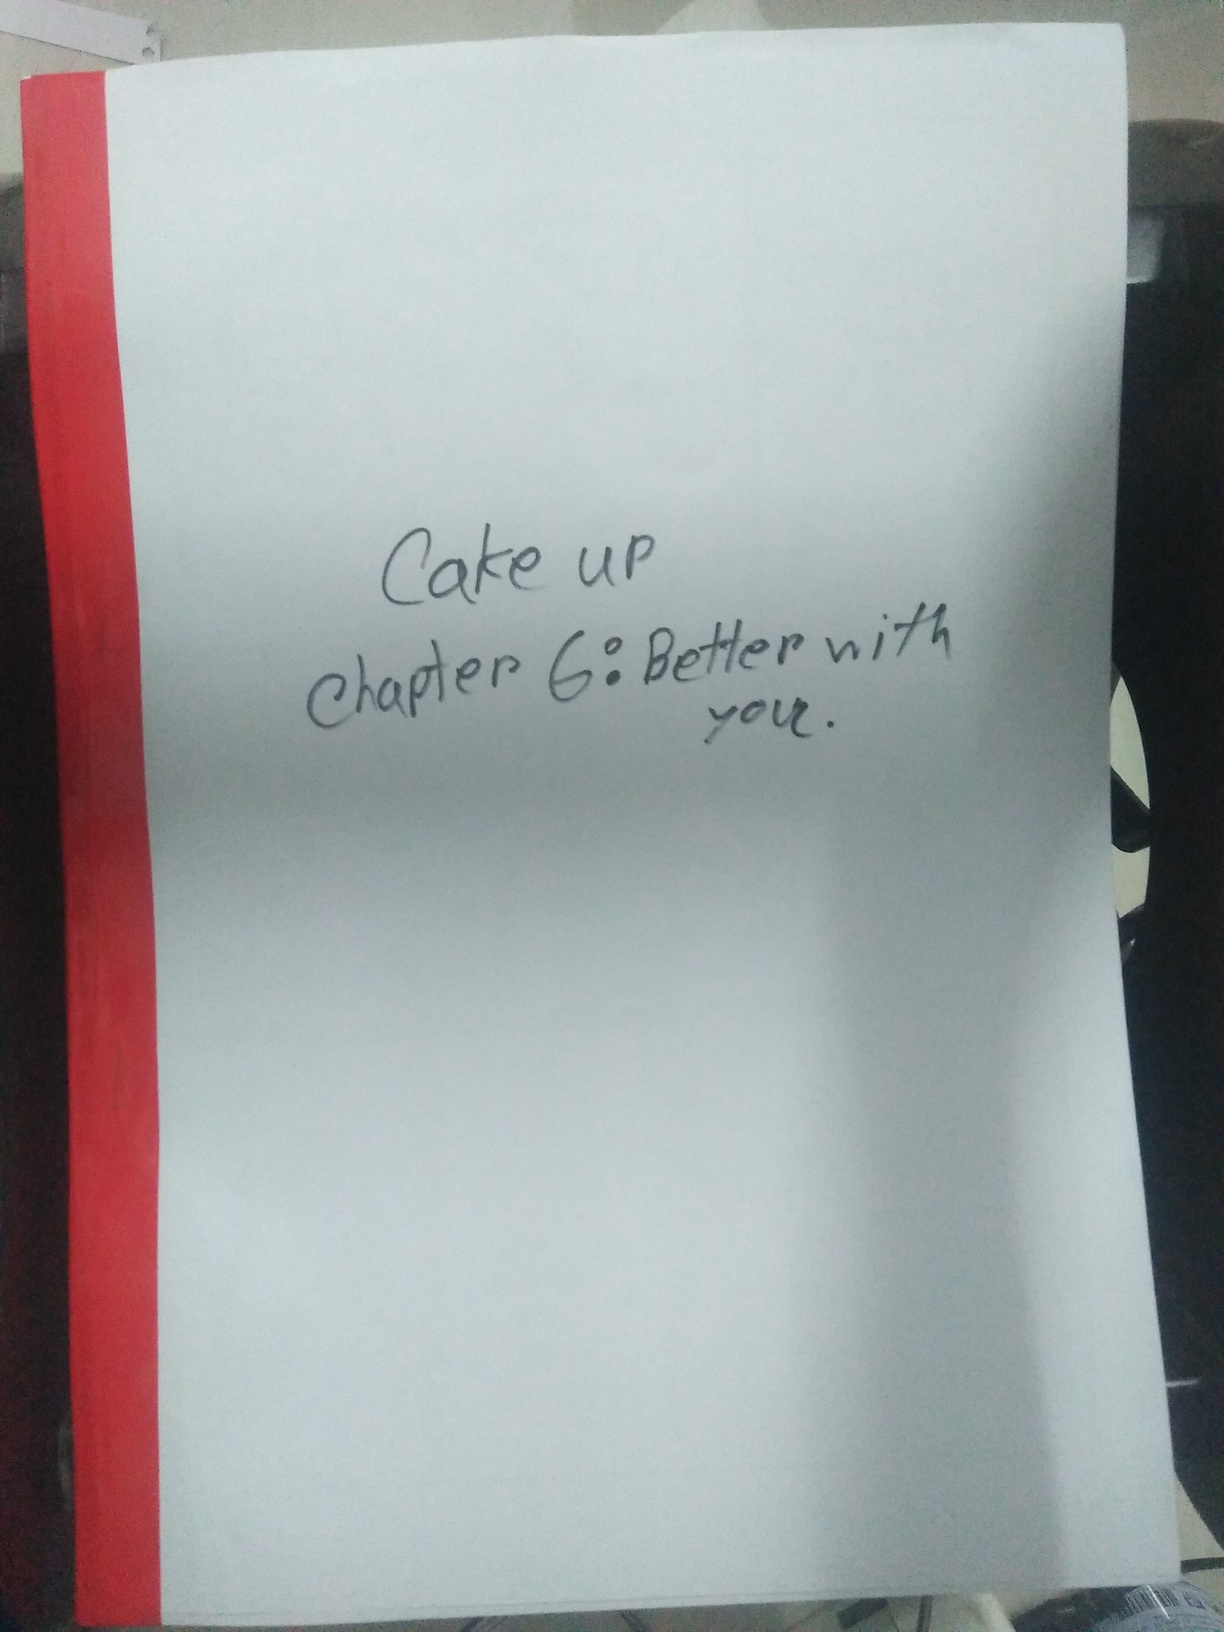 Cake up
Chapter 6: Better with
you.